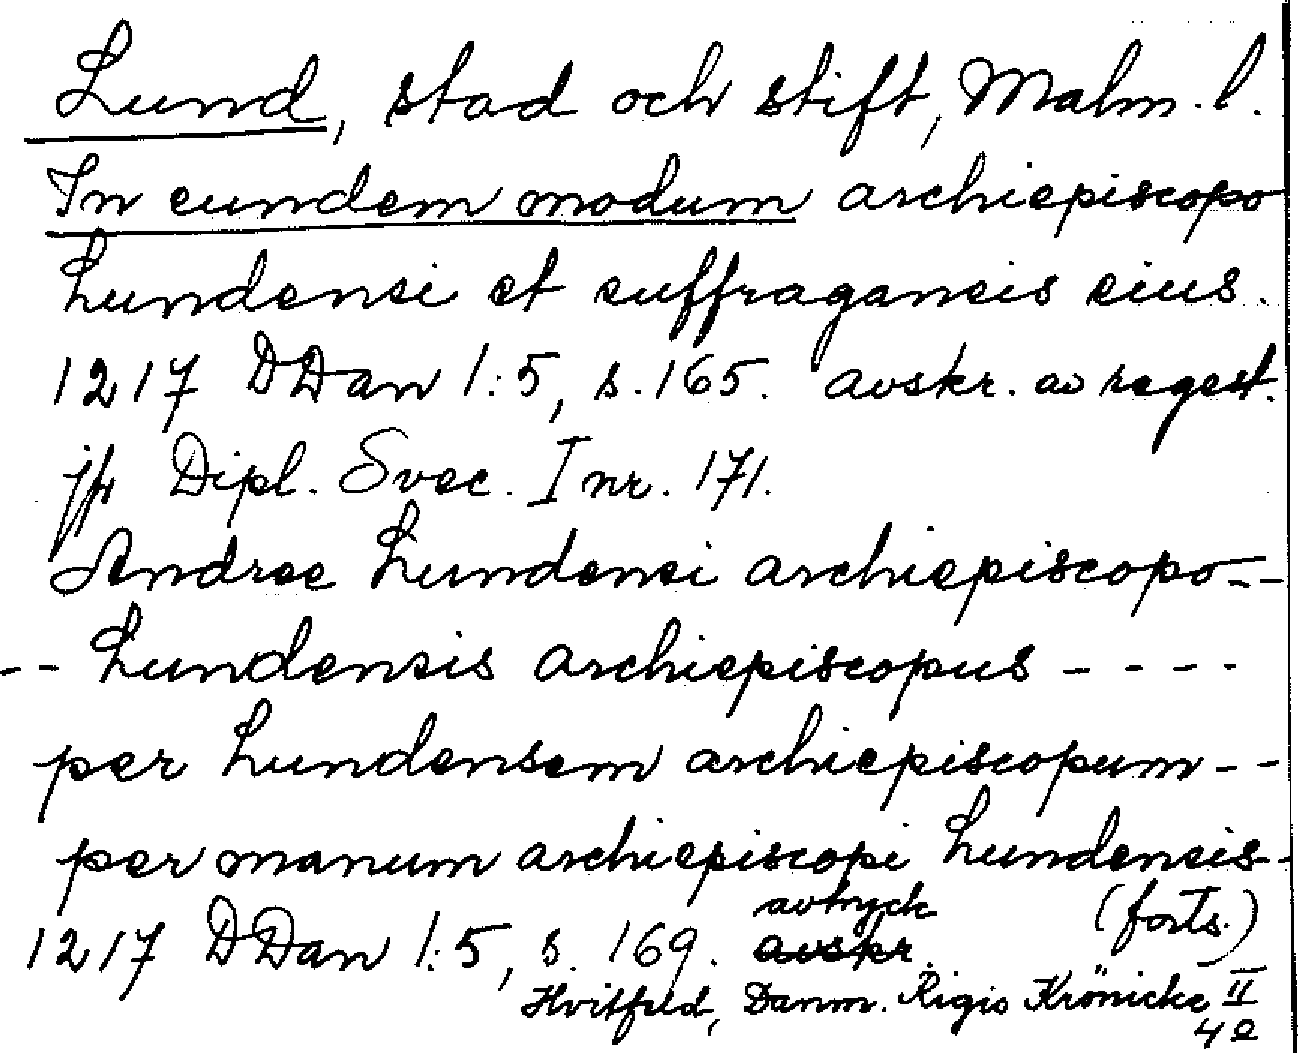 Lund, stad och stift, Malm. l.
In eundem modum archiepiscopo
Lundensi et suffraganeis eius.
1217 DDan 1:5, s. 165. avskr. av regest.
jfr Dipl. Svec. I nr. 171.
Andree Lundensi archiepiscopo --
-- Lundensis archiepiscopus ----
per Lundensem archiepiscopum --
per manum archiepiscopi Lundensis --
avtryck (forts.)
1217 DDan 1:5, s. 169. avskr.
Hvitfeld, Danm. Rigis Krönicke II
42